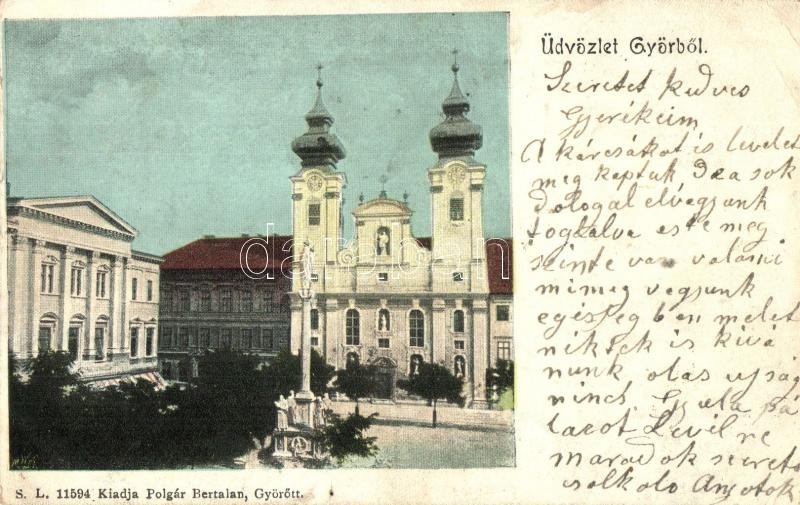 Üdvözlet Győrből.
Szeretet kedves
Gyerékeim
A kárcsákot is levelet
meg kaptuk De a sok
dologal elvégzünk
foglalva este meg
szinte van valami
mi meg vegzunk
egésség ben melet
niktek is kivá
nunk olás ujság
nincs Gyula pá
tarot Levil re
maradok szereto
Anyotok
darabanth
S. L. 11594 Kiadja Polgár Bertalan, Győrött.